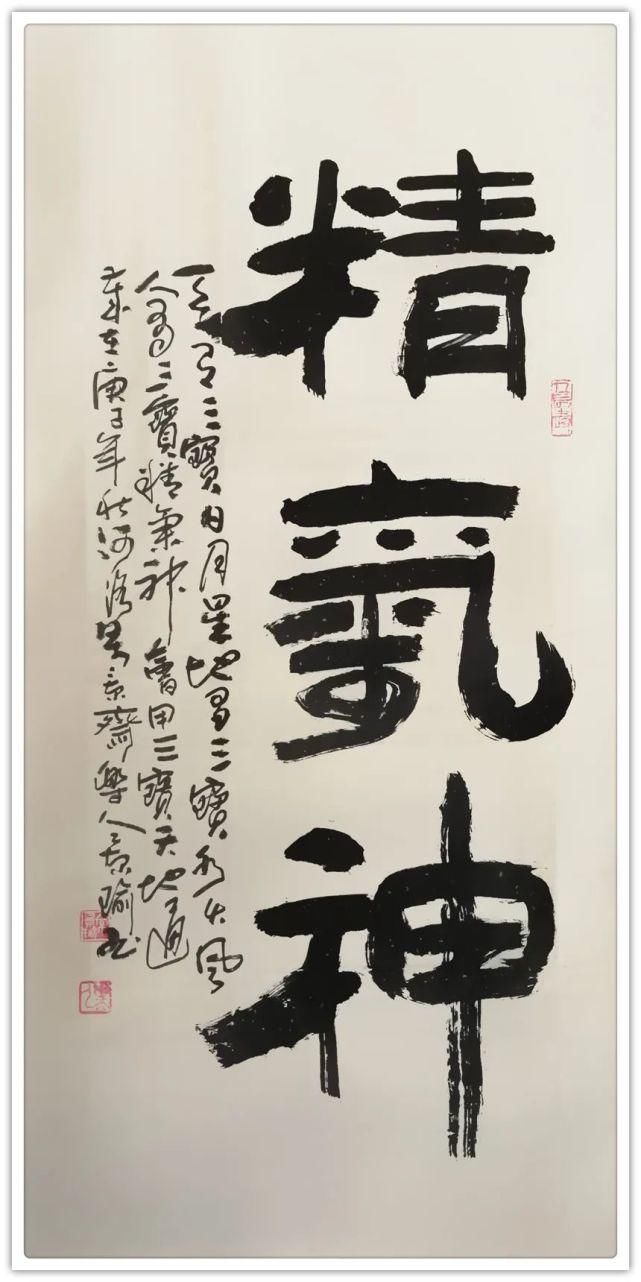 精氣神
天有三寶日月星地有三寶水火風
人有三寶精氣神會用三寶天地通
歲在庚子年秋河洛昊京齋樂人京瑜书